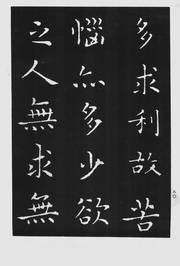 多求利故苦
惱亦多少欲
之人無求無